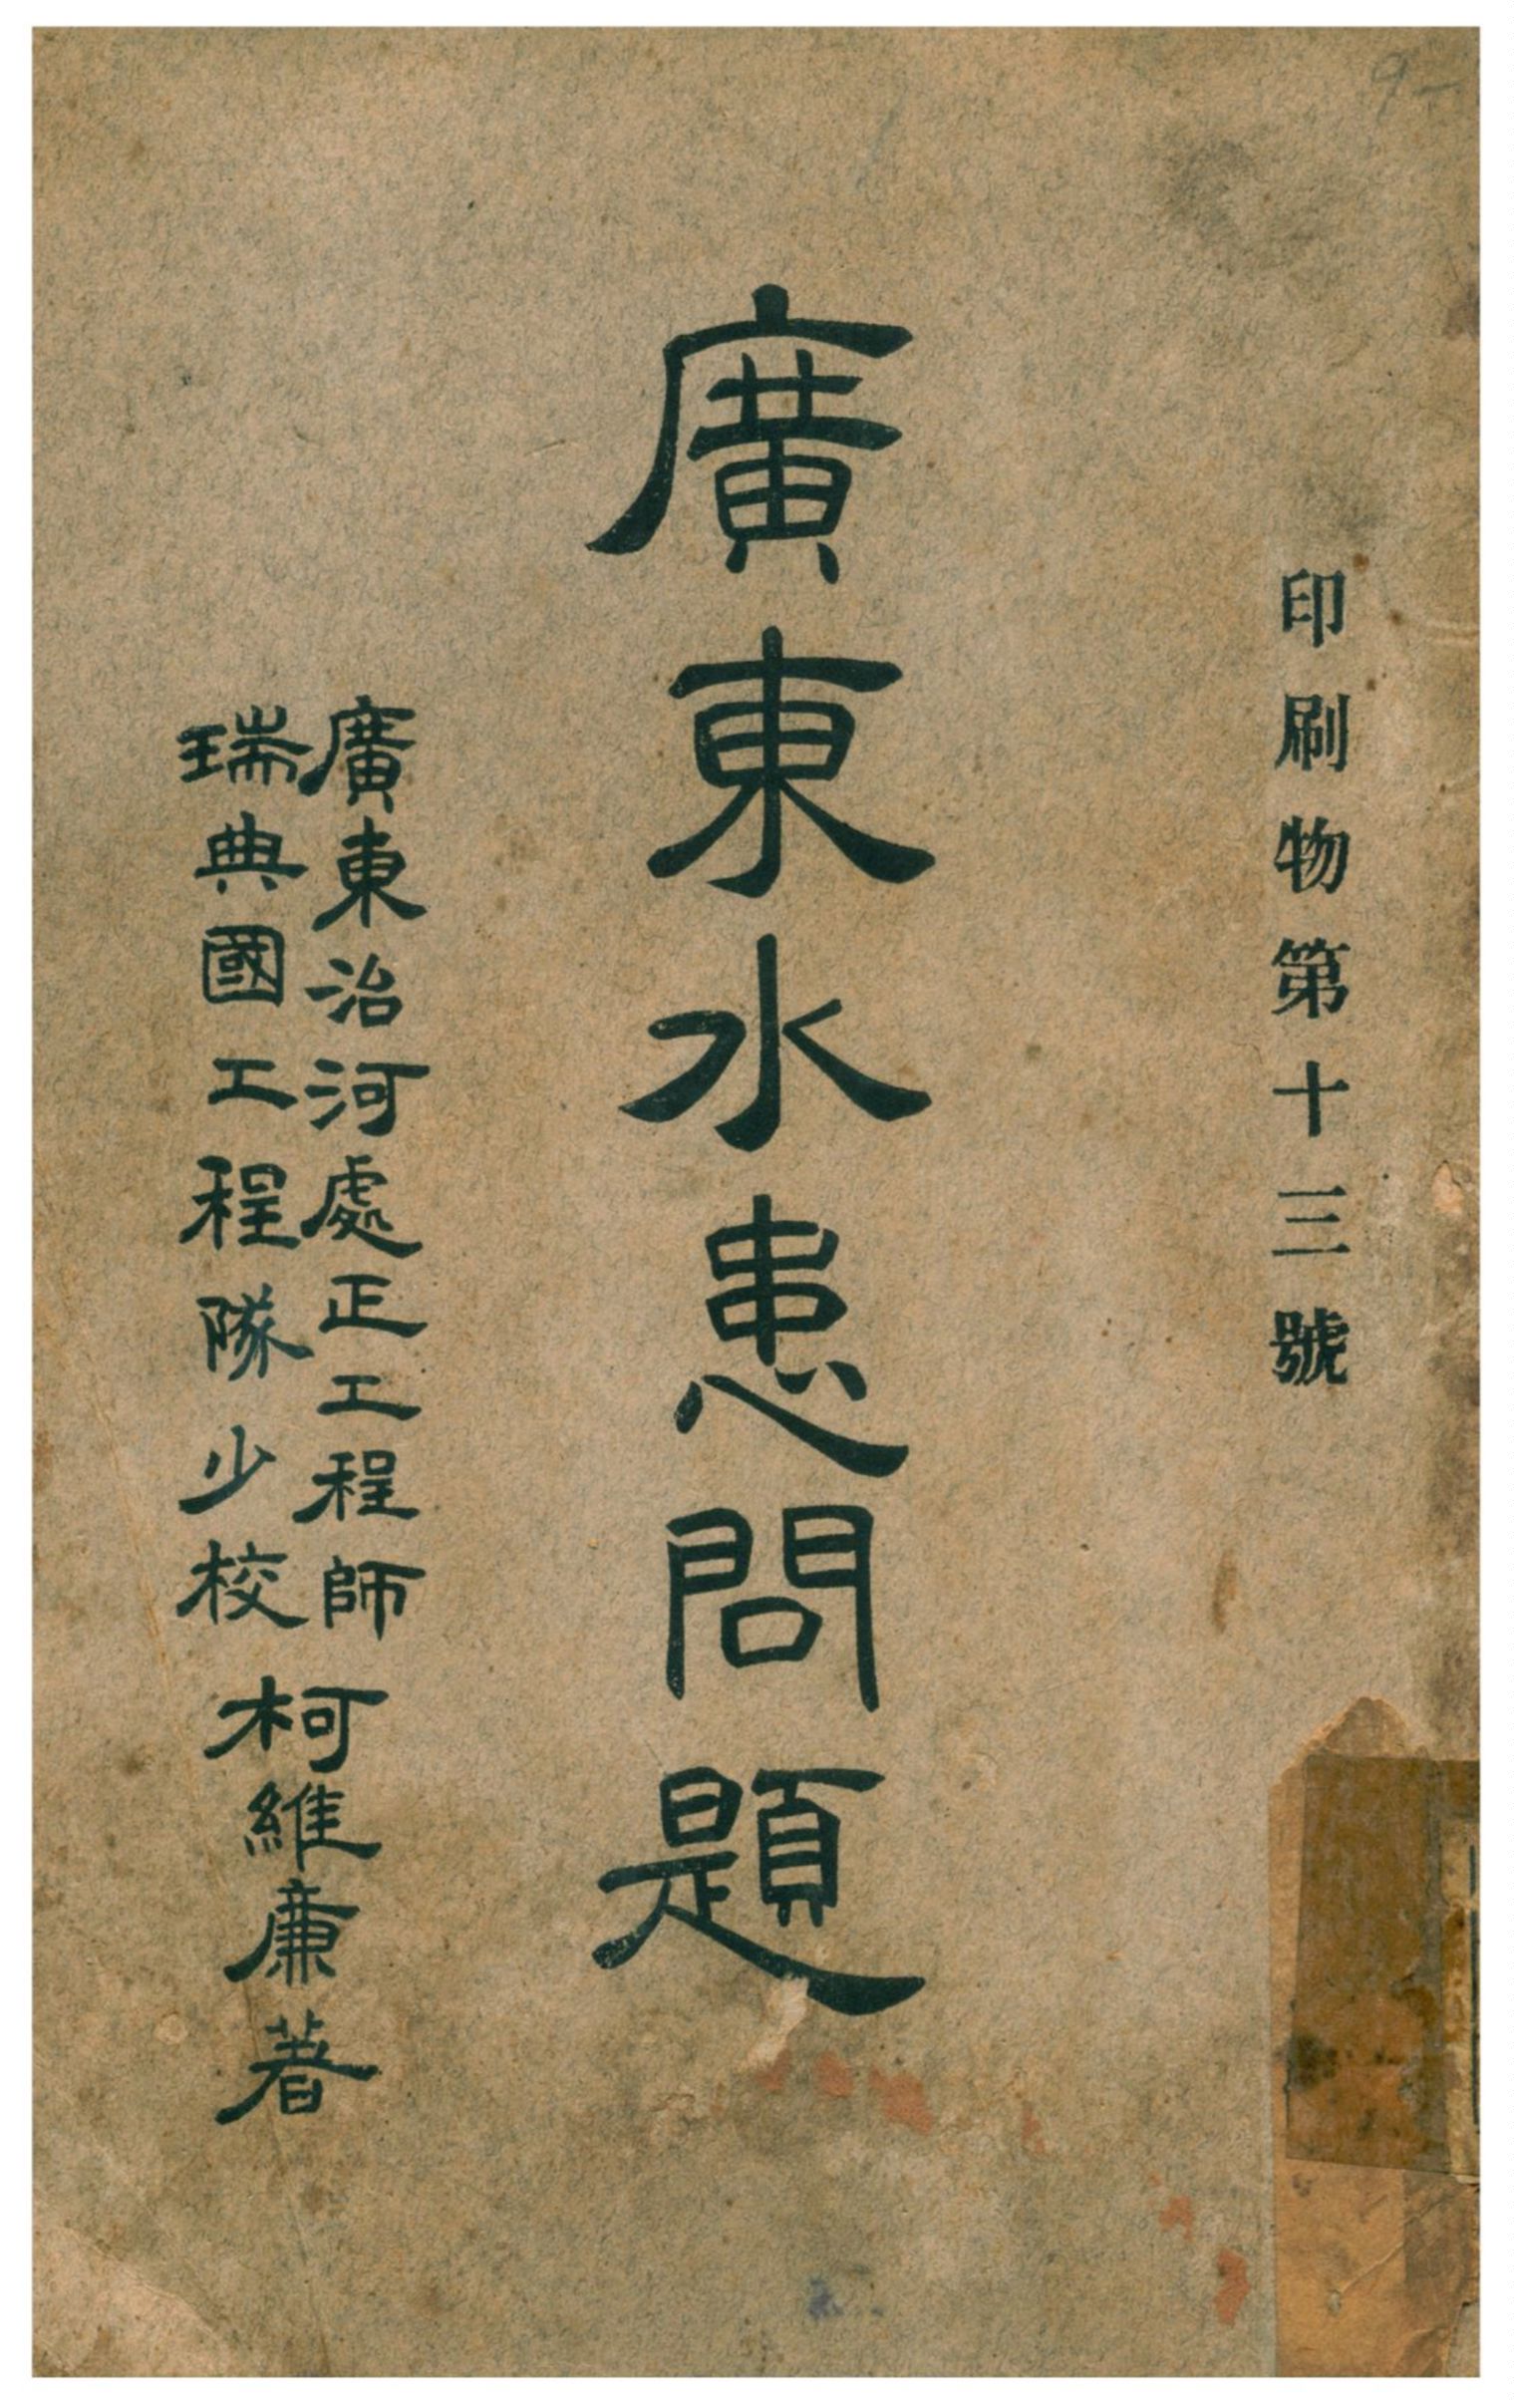 9-
印刷物第十三號
廣東水患問題
廣東治河處正工程師
瑞典國工程隊少校
柯維廉著